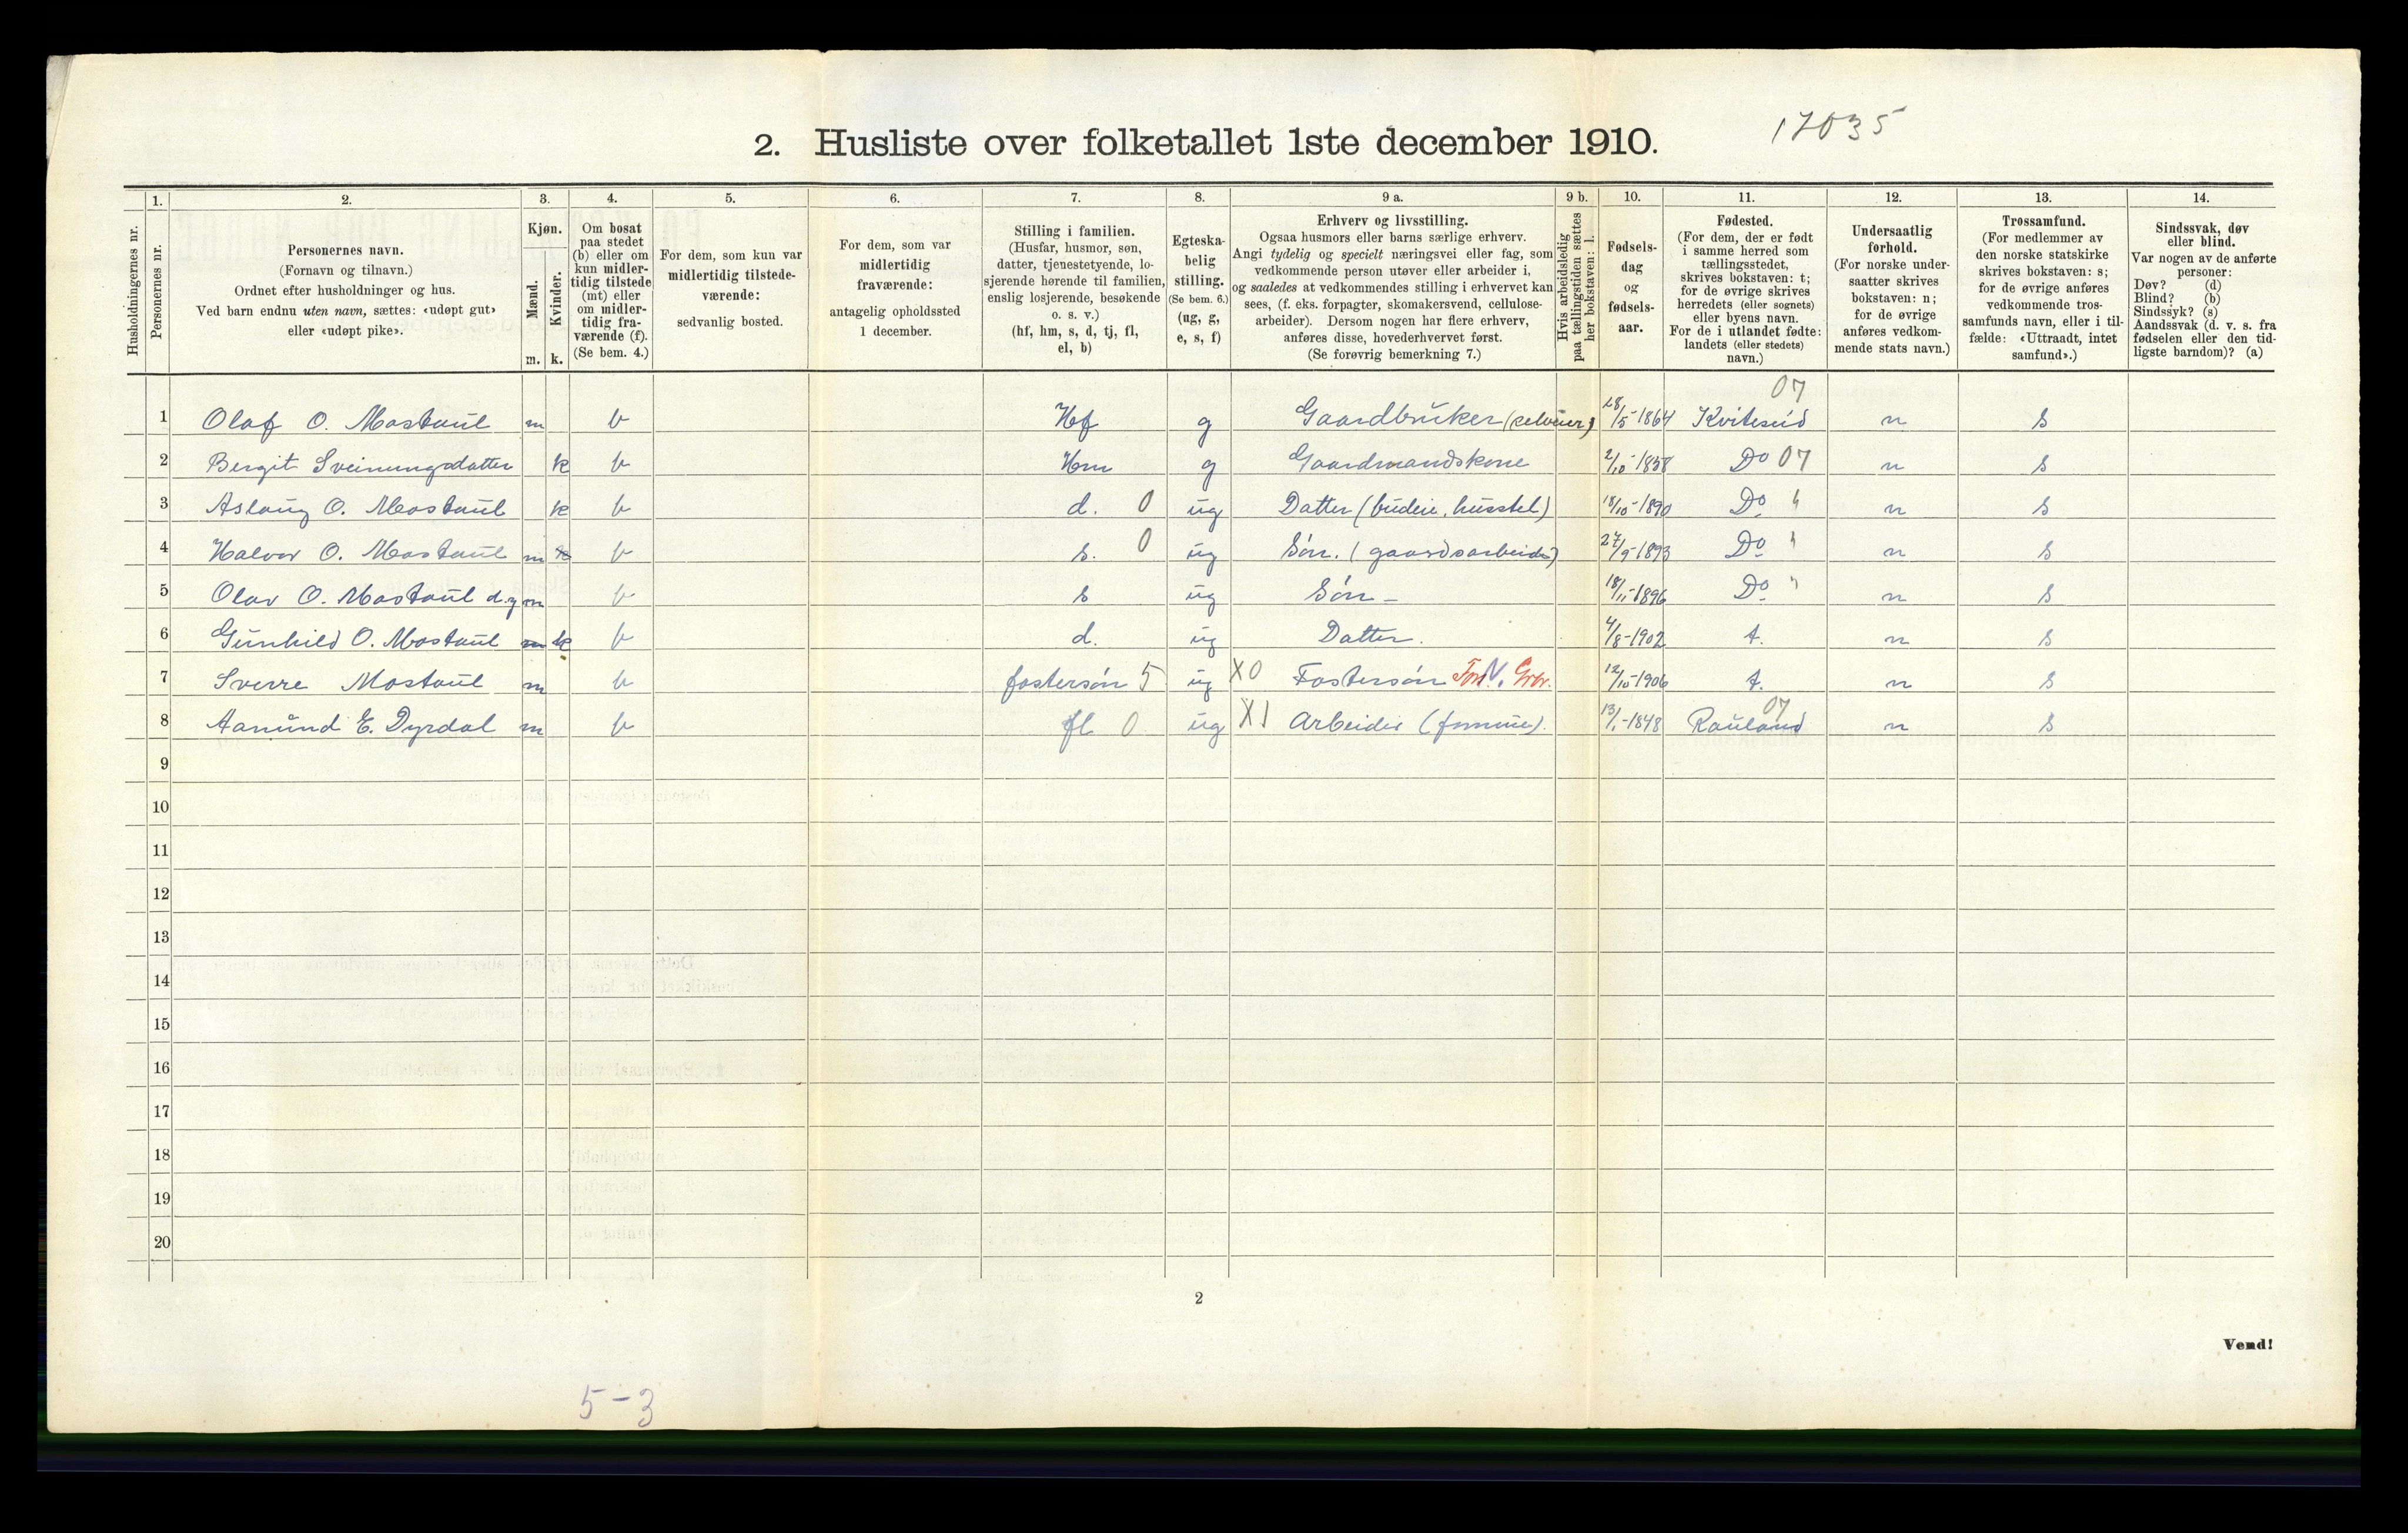 2. Husliste over folketallet 1ste december 1910.
17035
Husholdningernes nr.
1.
Personernes nr.
2.
Personernes navn.
(Fornavn og tilnavn.)
Ordnet efter husholdninger og hus.
Ved barn endnu uten navn, sættes: «udøpt gut»
eller «udøpt pike».
3.
Kjøn.
Mænd.
Kvinder.
m. k.
4.
Om bosat
paa stedet
(b) eller om
kun midler-
tidig tilstede
(mt) eller
om midler-
tidig fra-
værende (f).
(Se bem. 4.)
5.
For dem, som kun var
midlertidig tilstede-
værende:
sedvanlig bosted.
6.
For dem, som var
midlertidig
fraværende:
antagelig opholdssted
1 december.
7.
Stilling i familien.
(Husfar, husmor, søn,
datter, tjenestetyende, lo-
sjerende hørende til familien,
enslig losjerende, besøkende
o. s. v.)
(hf, hm, s, d, tj, fl,
el, b)
8.
Egteska-
belig
stilling.
(Se bem. 6.)
(ug, g,
e, s, f)
9 a.
Erhverv og livsstilling.
Ogsaa husmors eller barns særlige erhverv.
Angi tydelig og specielt næringsvei eller fag, som
vedkommende person utøver eller arbeider i,
og saaledes at vedkommendes stilling i erhvervet kan
sees, (f. eks. forpagter, skomakersvend, cellulose-
arbeider). Dersom nogen har flere erhverv,
anføres disse, hovederhvervet først.
(Se forøvrig bemerkning 7.)
9 b.
Hvis arbeidsledig
paa tællingstiden sættes
her bokstaven: l.
10.
Fødsels-
dag
og
fødsels-
aar.
11.
Fødested.
(For dem, der er født
i samme herred som
tællingsstedet,
skrives bokstaven: t;
for de øvrige skrives
herredets (eller sognets)
eller byens navn.
For de i utlandet fødte:
landets (eller stedets)
navn.)
12.
Undersaatlig
forhold.
(For norske under-
saatter skrives
bokstaven: n;
for de øvrige
anføres vedkom-
mende stats navn.)
13.
Trossamfund.
(For medlemmer av
den norske statskirke
skrives bokstaven: s;
for de øvrige anføres
vedkommende tros-
samfunds navn, eller i til-
fælde: «Uttraadt, intet
samfund».)
14.
Sindssvak, døv
eller blind.
Var nogen av de anførte
personer:
Døv? (d)
Blind? (b)
Sindssyk? (s)
Aandssvak (d. v. s. fra
fødselen eller den tid-
ligste barndom)? (a)
07
1 Olaf O. Mostaul m b Hf g Gaardbruker (selveier) 28/5-1864 Kviteseid n s
2 Bergit Sveinungsdatter k b Hm g Gaardmandskone 2/10-1858 Do 07 n s
3 Aslaug O. Mostaul k b d. 0 ug Datter (budeie, husstel) 18/10-1890 Do " n s
4 Halvor O. Mostaul m k b s. 0 ug Søn. (gaardsarbeide) 27/9-1893 Do " n s
5 Olav O. Mostaul d.y m b s ug Søn - 18/11-1896 Do " n s
6 Gunhild O. Mostaul m k b d. ug Datter. 4/8-1902 t. n s
7 Sverre Mostaul m b fostersøn 5 ug X0 Fostersøn 12/10-1906 t. n s
07
8 Aanund E. Dyrdal m b fl 0 ug X1 Arbeider 13/1-1848 Rauland n s
9
10
11
12
13
14
15
16
17
18
19
20
2
Vend!
5-3